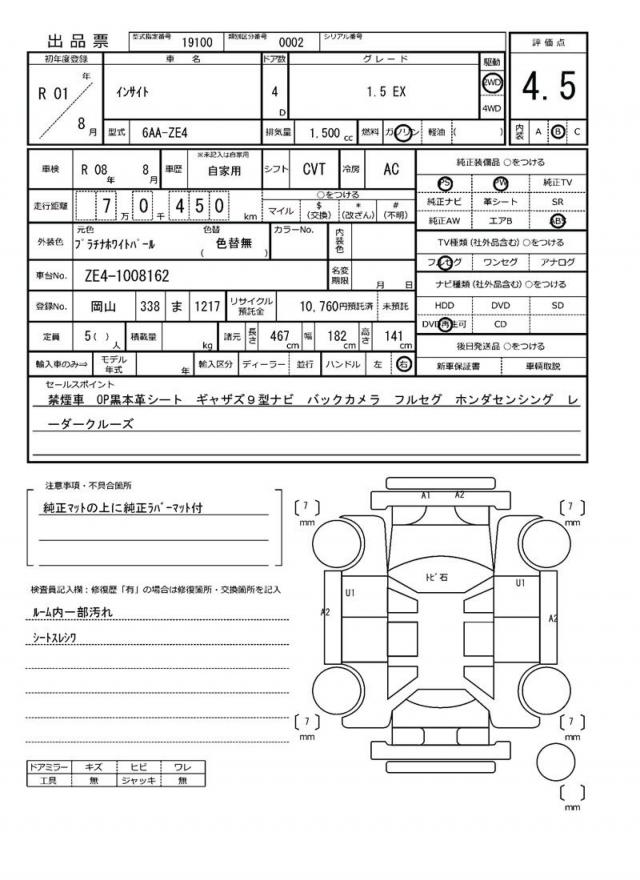 出品票 型式指定番号 19100 類別区分番号 0002 シリアル番号
初年度登録 車名 ドア数 グレード 駆動 評価点
R 01 年 8 月 ｲﾝｻｲﾄ 4 D 1.5 EX 2WD 4WD 4.5
型式 6AA-ZE4 排気量 1.500 cc 燃料 ガソリン 軽油 ( ) 内装 A B C
車検 R 08 年 8 月 車歴 ※未記入は自家用 自家用 シフト CVT 冷房 AC
純正装備品 ○をつける
PS PW 純正TV
純正ナビ 革シート SR
純正AW エアB ABS
走行距離 7 万 0 千 4 5 0 km
○をつける
マイル $ (交換) * (改ざん) # (不明)
外装色 元色 ﾌﾟﾗﾁﾅﾎﾜｲﾄﾊﾟｰﾙ 色替 ( 色替無 ) カラーNo. 内装色
TV種類 (社外品含む) ○をつける
フルセグ ワンセグ アナログ
車台No. ZE4-1008162 名変期限 月 日
ナビ種類 (社外品含む) ○をつける
HDD DVD SD
DVD再生可 CD
登録No. 岡山 338 ま 1217 リサイクル預託金 10,760円預託済 未預託
定員 5( ) 人 積載量 kg 諸元 長さ 467 cm 幅 182 cm 高さ 141 cm
後日発送品 ○をつける
新車保証書 車輌取説
輸入車のみ⇒ モデル年式 年 輸入区分 ディーラー 並行 ハンドル 左 右
セールスポイント
禁煙車 OP黒本革シート ギャザズ９型ナビ バックカメラ フルセグ ホンダセンシング レ
ーダークルーズ
注意事項・不具合箇所
純正ﾏｯﾄの上に純正ﾗﾊﾞｰﾏｯﾄ付
検査員記入欄：修復歴「有」の場合は修復箇所・交換箇所を記入
ﾙｰﾑ内一部汚れ
ｼｰﾄｽﾚｼﾜ
ドアミラー キズ ヒビ ワレ
工具 無 ジャッキ 無
A1 A2
7 mm
7 mm
ﾄﾋﾞ石
U1
U1
A2
A2
7 mm
7 mm
mm